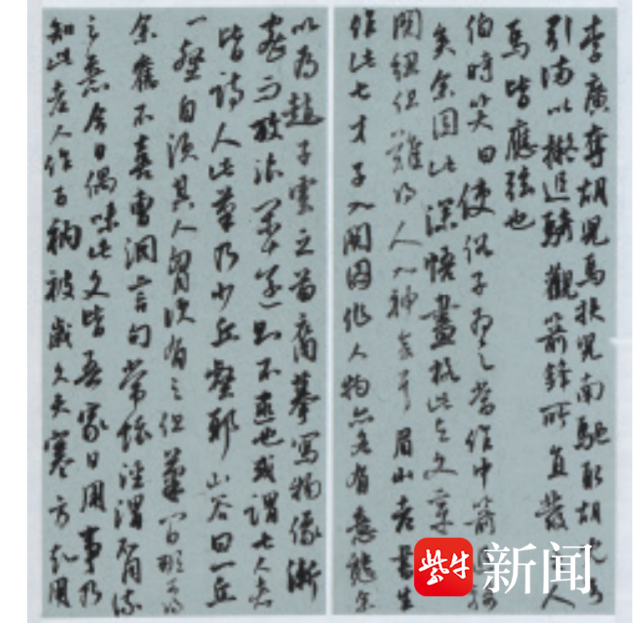 李廣奪胡兒馬挾兒南馳取胡兒弓
引滿以擬追騎觀箭鋒所直發之人
馬皆應弦也
伯時笑曰使俗子為之當作中箭追騎
矣余因此深悟畫格此與文章
關紐但難得人入神會耳眉山老書生
作此七才子入關圖作人物亦各有意態余
以為趙子雲之苗裔摹寫物像漸
密而放浪閑遠則不逮也或謂七人者
皆詩人此筆乃少丘壑耶山谷曰一丘
一壑自須其人胸次有之但筆間那可得
余舊不喜曹洞言句常懷涇渭不同流
之意今日偶味此文皆吾家日用事乃
知此老人作百衲被歲久天寒方知用
紫牛新闻